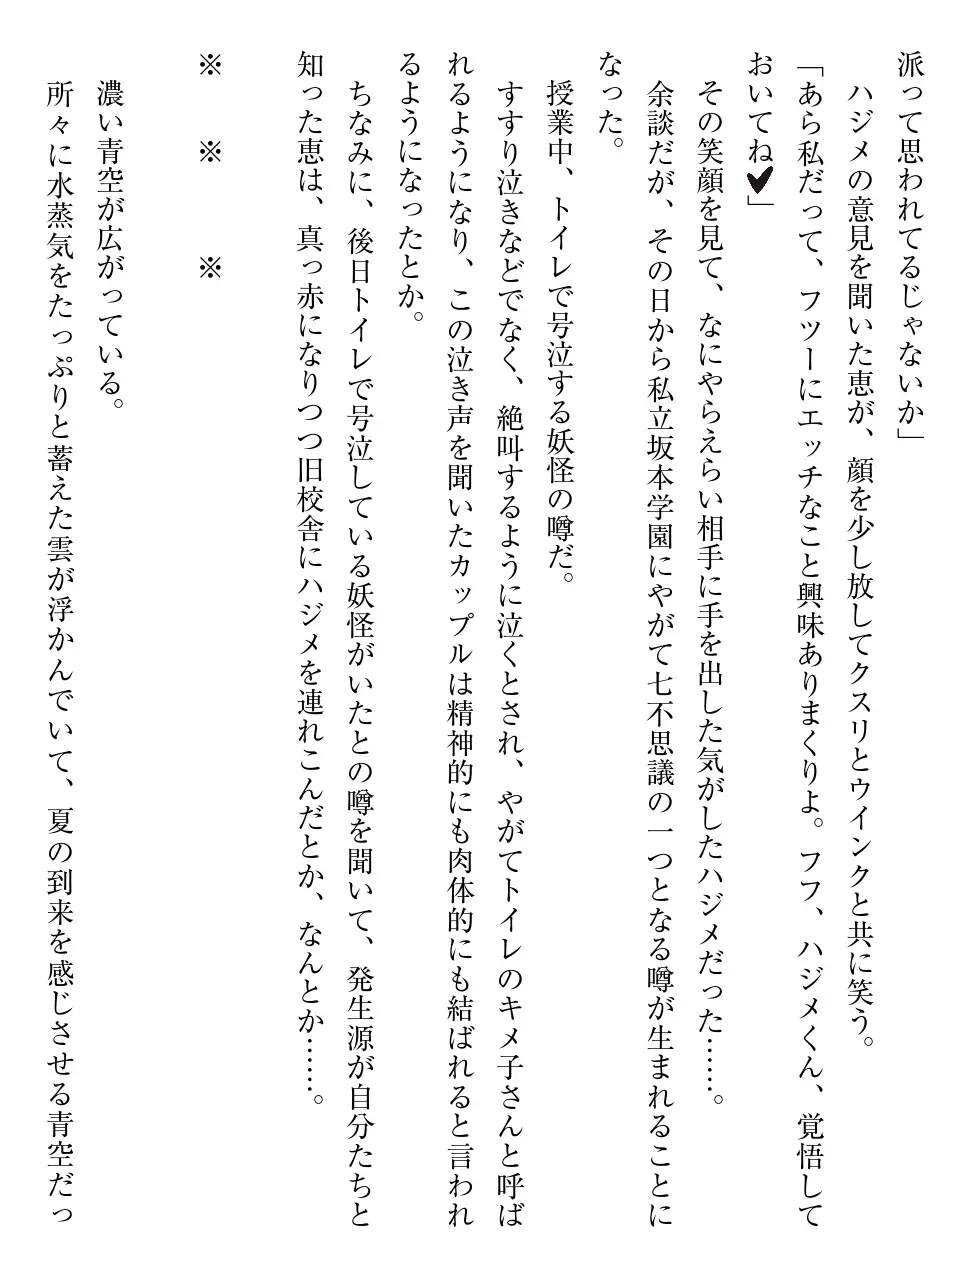 派って思われてるじゃないか」
　ハジメの意見を聞いた恵が、顔を少し放してクスリとウインクと共に笑う。
「あら私だって、フツーにエッチなこと興味ありまくりよ。フフ、ハジメくん、覚悟して
おいてね♥」
　その笑顔を見て、なにやらえらい相手に手を出した気がしたハジメだった……。
　余談だが、その日から私立坂本学園にやがて七不思議の一つとなる噂が生まれることに
なった。
　授業中、トイレで号泣する妖怪の噂だ。
　すすり泣きなどでなく、絶叫するように泣くとされ、やがてトイレのキメ子さんと呼ば
れるようになり、この泣き声を聞いたカップルは精神的にも肉体的にも結ばれると言われ
るようになったとか。
　ちなみに、後日トイレで号泣している妖怪がいたとの噂を聞いて、発生源が自分たちと
知った恵は、真っ赤になりつつ旧校舎にハジメを連れこんだとか、なんとか……。
※　　※　　　※
　濃い青空が広がっている。
　所々に水蒸気をたっぷりと蓄えた雲が浮かんでいて、夏の到来を感じさせる青空だっ